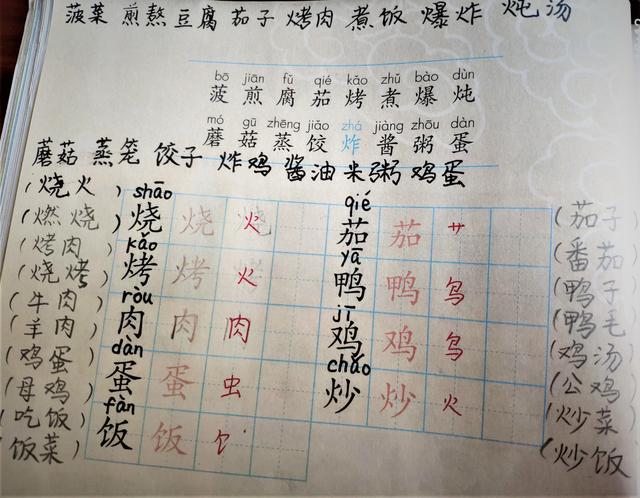 菠菜 煎熬 豆腐 茄子 烤肉 煮饭 爆炸 炖汤
bō jiān fǔ qié kǎo zhǔ bào dùn
菠 煎 腐 茄 烤 煮 爆 炖
mó gū zhēng jiǎo zhá jiàng zhōu dàn
蘑 菇 蒸 饺 炸 酱 粥 蛋
蘑菇 蒸笼 饺子 炸鸡 酱油 米粥 鸡蛋
shāo qié
(烧火) 烧 烧 烧 火 茄 茄 艹 (茄子)
(燃烧) (番茄)
kǎo yā
(烤肉) 烤 烤 烤 火 鸭 鸭 鸟 (鸭子)
(烧烤) (鸭毛)
ròu jī
(牛肉) 肉 肉 肉 鸡 鸡 鸟 (鸡汤)
(羊肉) (公鸡)
dàn chǎo
(鸡蛋) 蛋 蛋 虫 炒 炒 火 (炒菜)
(母鸡) (炒饭)
fàn
(吃饭) 饭 饭 饣
(饭菜)